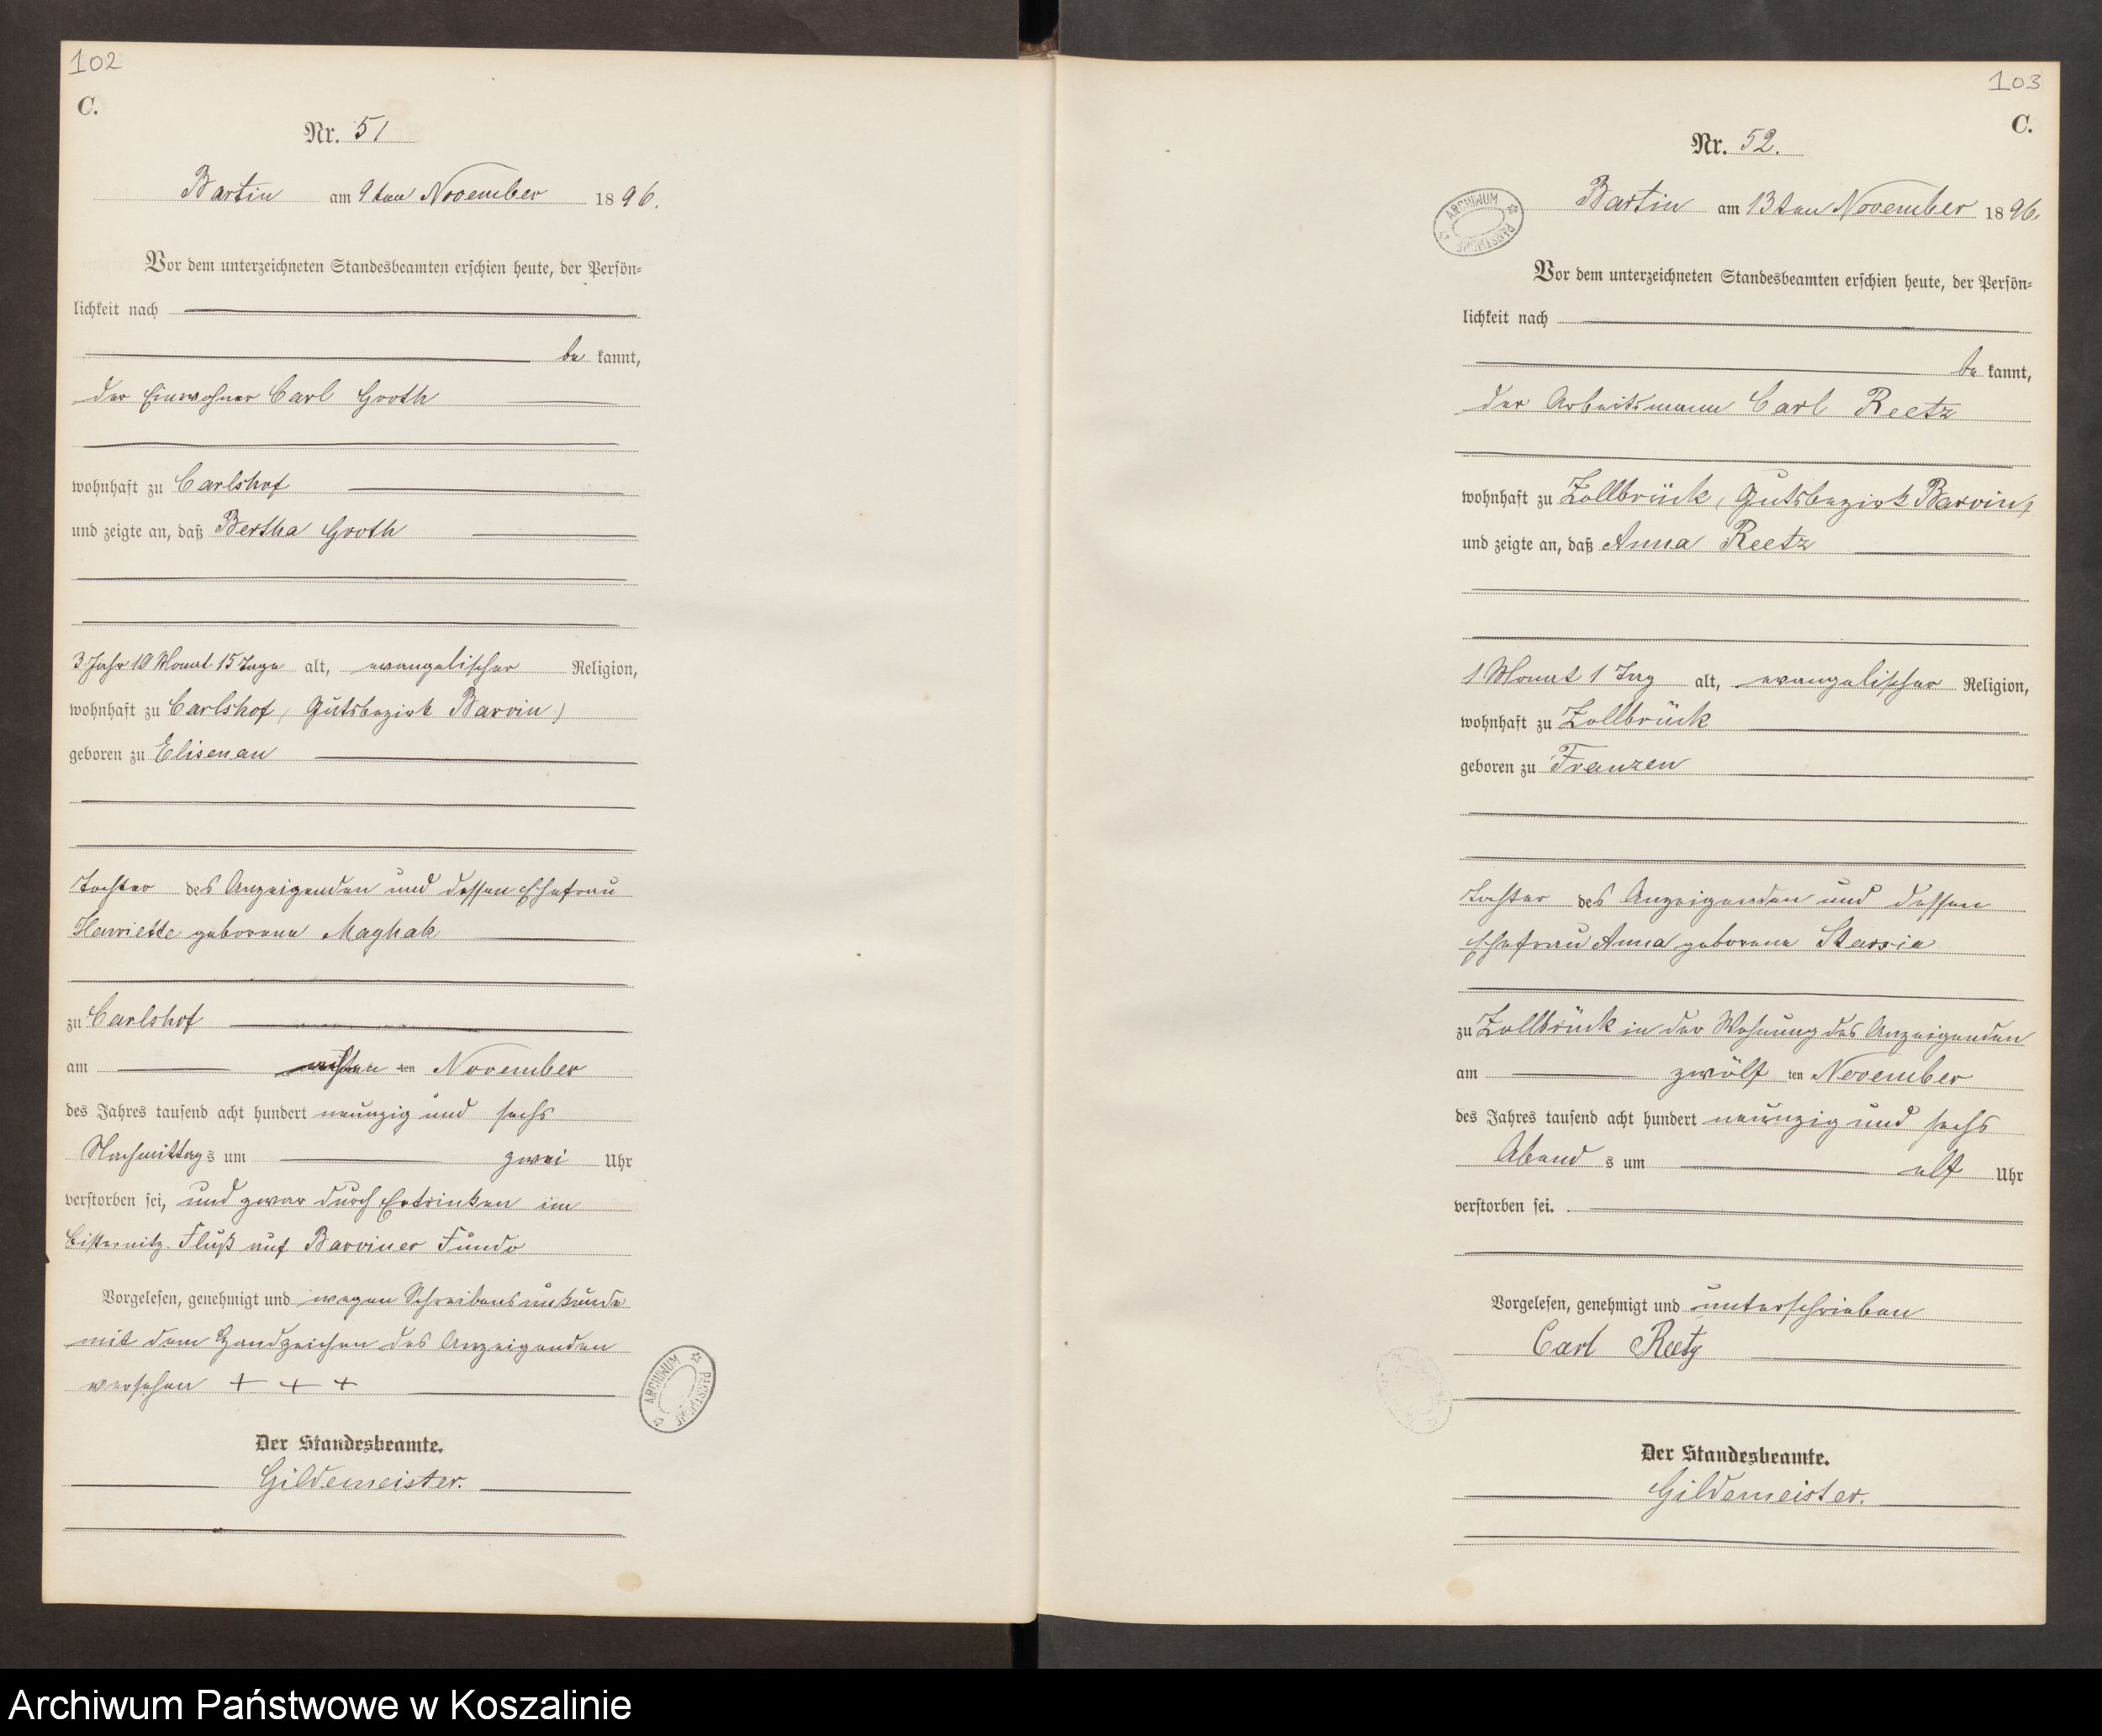 102
C.
Nr. 51
Bartin am 9ten November 1896.
Vor dem unterzeichneten Standesbeamten erschien heute, der Persön=
lichkeit nach
be kannt,
der Einwohner Carl Groth
wohnhaft zu Carlshof
und zeigte an, daß Bertha Groth
3 Jahr 10 Monat 15 Tage alt, evangelischer Religion,
wohnhaft zu Carlshof (Gutsbezirk Barvin)
geboren zu Elisenau
Tochter des Anzeigenden und dessen Ehefrau
Henriette geborene Maghak
zu Carlshof
am ten November
des Jahres tausend acht hundert neunzig und sechs
Nachmittags um zwei Uhr
verstorben sei, und zwar durch Ertrinken im
Fluß auf Barviner Fundo
Vorgelesen, genehmigt und wegen Schreibensunkunde
mit dem Handzeichen des Anzeigenden
versehen + + +
Der Standesbeamte.
Gildemeister.
ARCHIWUM PAŃSTWOWE
103
C.
Nr. 52.
Bartin am 13ten November 1896.
ARCHIWUM PAŃSTWOWE
Vor dem unterzeichneten Standesbeamten erschien heute, der Persön=
lichkeit nach
be kannt,
der Arbeitsmann Carl Reetz
wohnhaft zu Zollbrück, (Gutsbezirk Barvin)
und zeigte an, daß Anna Reetz
1 Monat 1 Tag alt, evangelischer Religion,
wohnhaft zu Zollbrück
geboren zu Franzen
Tochter des Anzeigenden und dessen
Ehefrau Anna geborene
zu Zollbrück in der Wohnung des Anzeigenden
am zwölf ten November
des Jahres tausend acht hundert neunzig und sechs
Abend s um elf Uhr
verstorben sei.
Vorgelesen, genehmigt und unterschrieben
Carl Reetz
Der Standesbeamte.
Gildemeister.
Archiwum Państwowe w Koszalinie